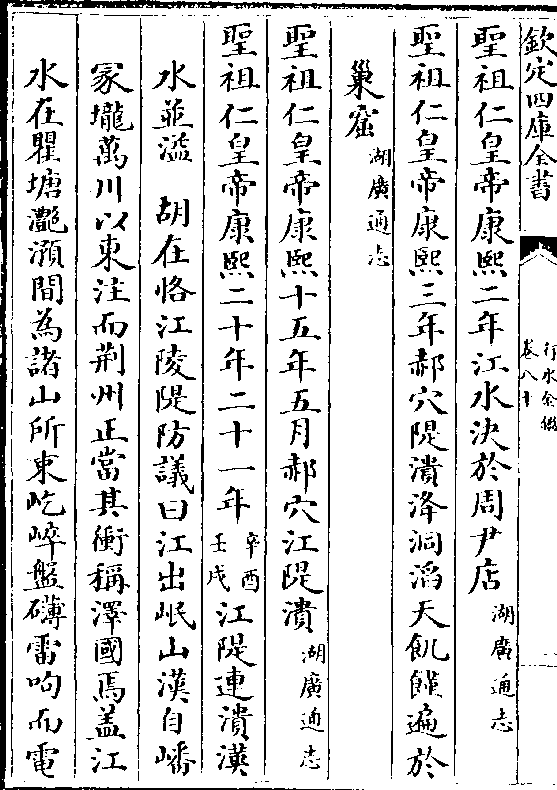 欽定四庫全書
行水金鑑
卷八十
聖祖仁皇帝康熙二年江水決於周尹店湖廣通志
聖祖仁皇帝康熙三年郝穴隄潰洚洞滔天飢饉遍於
巢窟湖廣通志
聖祖仁皇帝康熙十五年五月郝穴江隄潰湖廣通志
聖祖仁皇帝康熙二十年二十一年辛酉壬戌江隄連潰漢
水並溢 胡在恪江陵隄防議曰江出岷山漢自嶓
冢壠萬川以東注而荆州正當其衝稱澤國焉盖江
水在瞿塘灔澦間為諸山所束屹崒盤礴雷呴而電